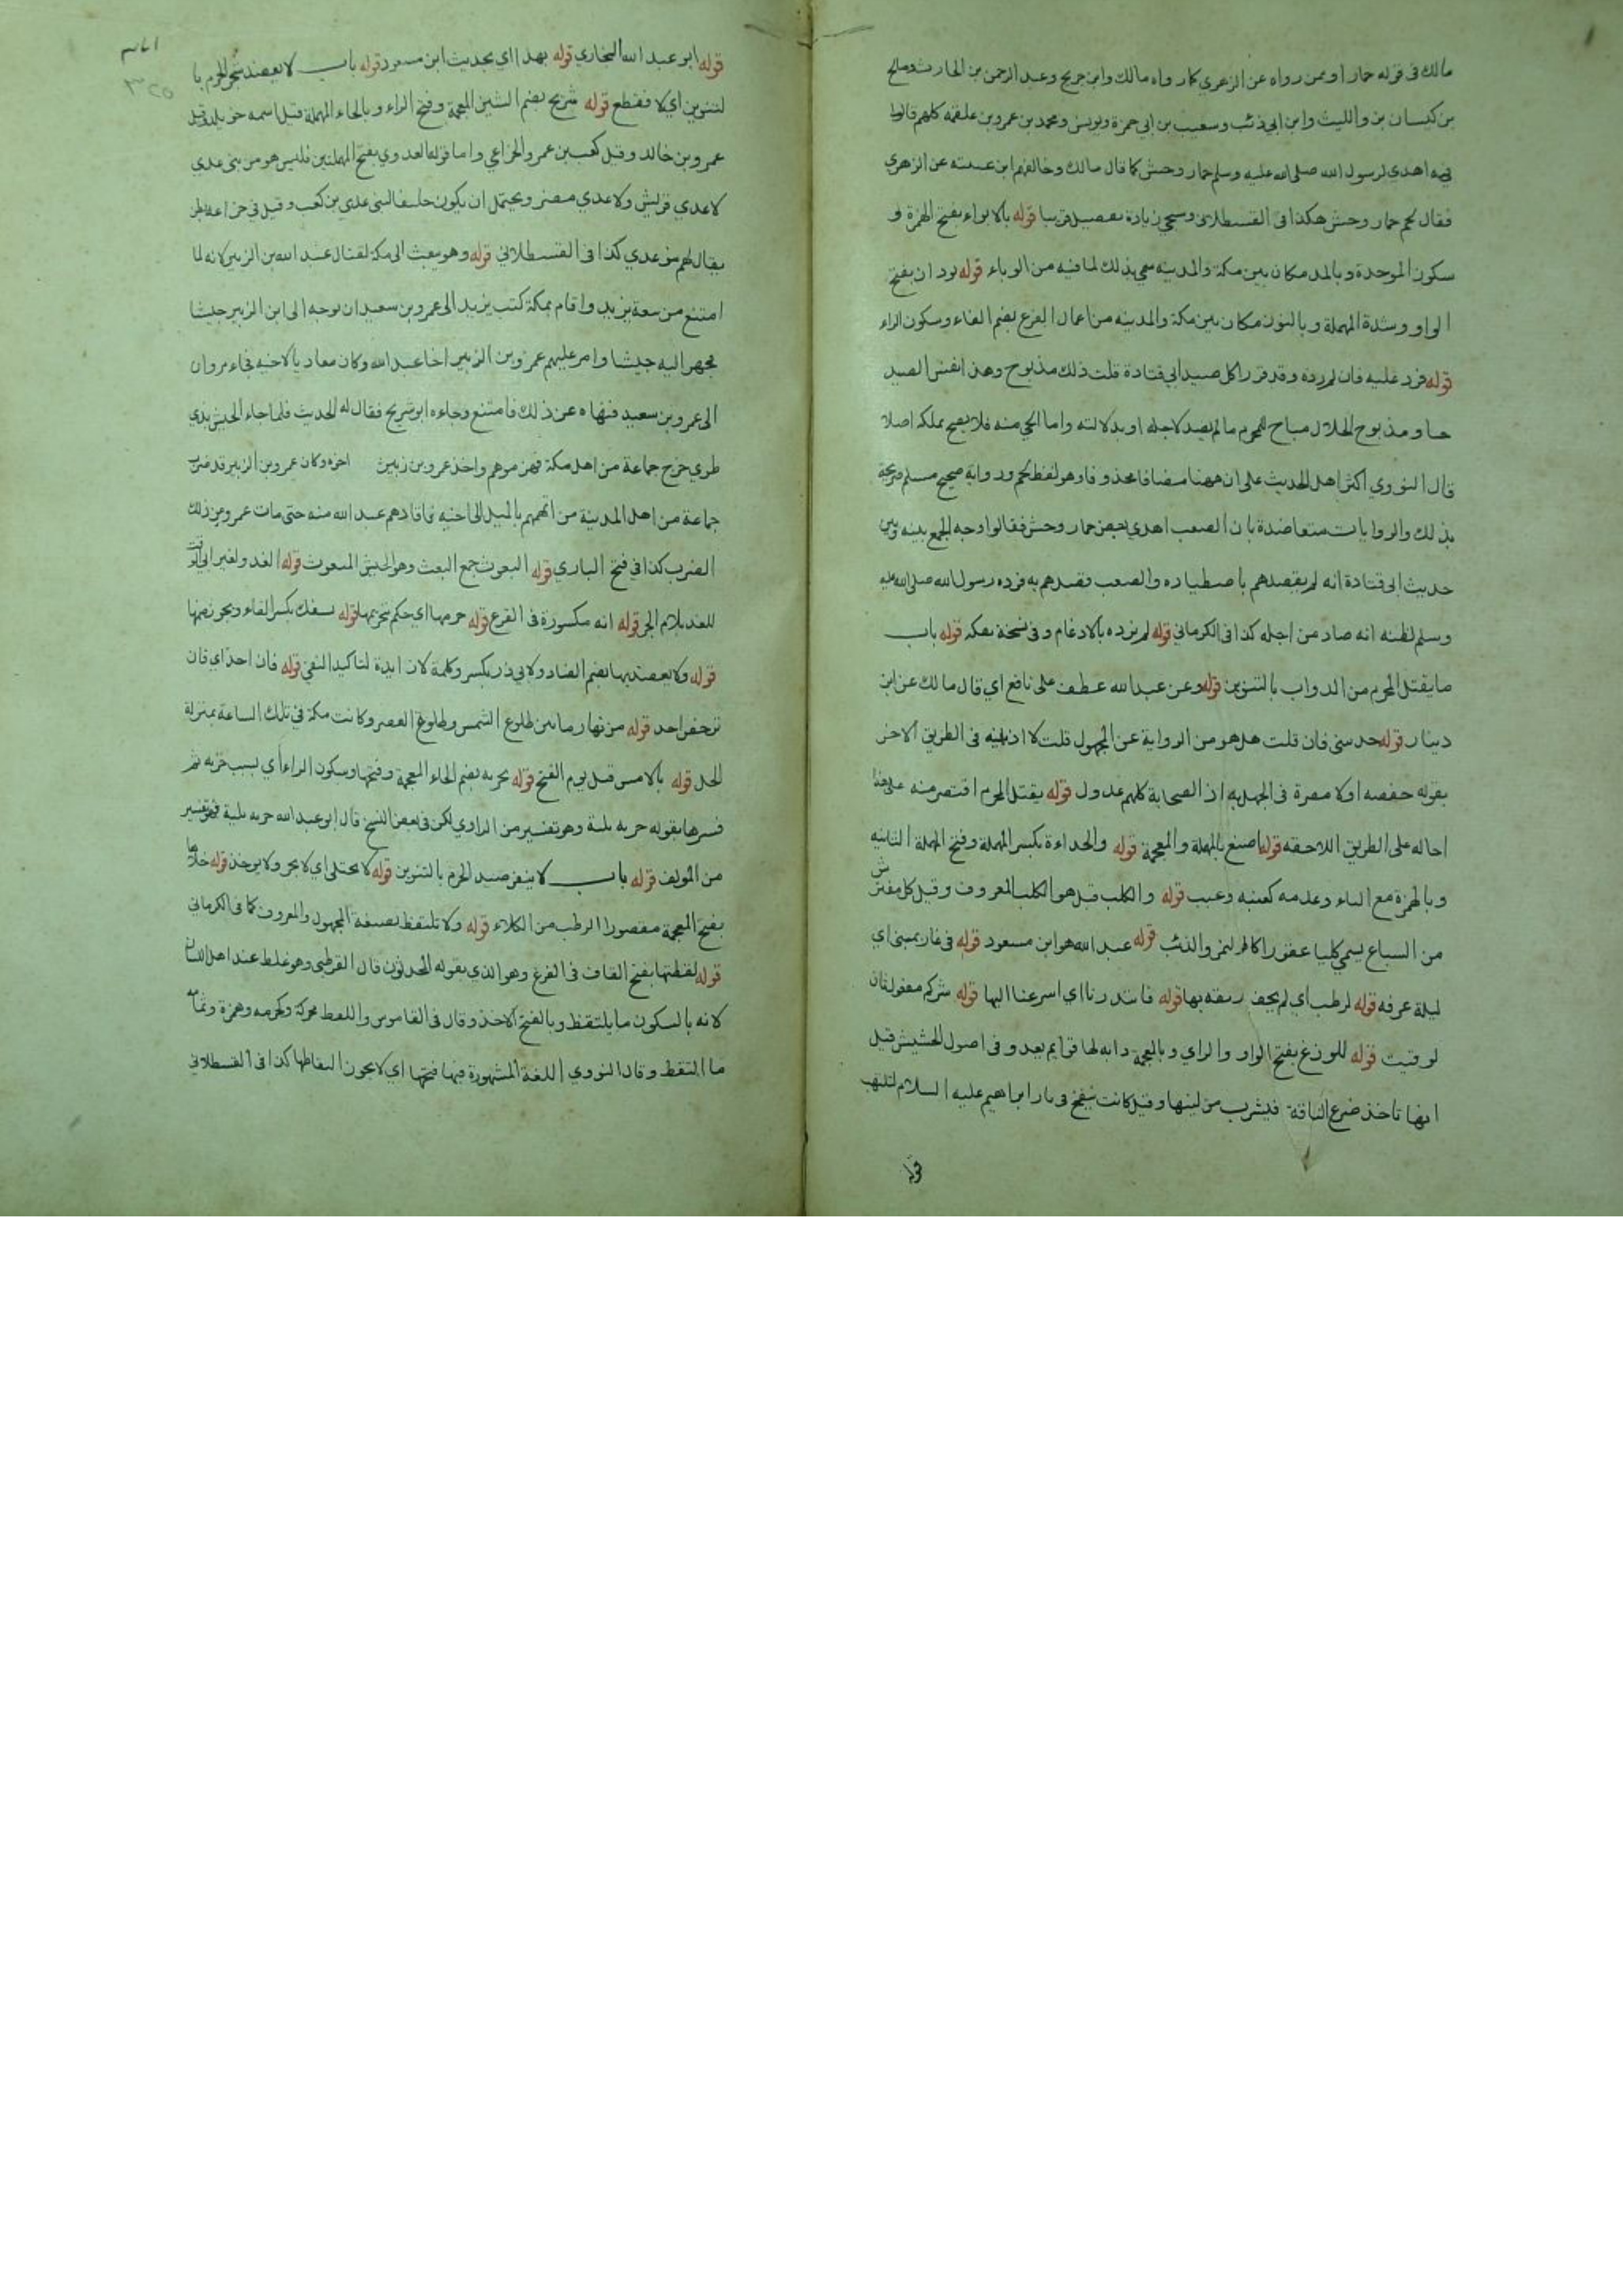 مالك في قوله حمارا وممن رواه عن الزهري كما رواه مالك وابن جريج وعبد الرحمن بن الحارث وصالح
بن كيسان بن والليث وابن ابي ذئب وشعيب بن ابي حمزة ويونس ومحمد بن عمرو بن علقمه كلهم قالوا
فيه اهدي لرسول الله صلى الله عليه وسلم حمار وحش كما قال مالك وخالفهم ابن عيينه عن الزهري
فقال لحم حمار وحش هكذا في القسطلاني وسيجي زيادة تفصيل قريبا قوله بالابواء بفتح الهمزة و
سكون الموحدة وبالمد مكان بين مكة والمدينه سمي بذلك لما فيه من الوباء قوله بودان بفتح
الواو وشدة المهملة وبالنون مكان بين مكة والمدينه من اعمال الفرع بضم الفاء وسكون الراء
قوله فرد عليه فان لم رده وقد قرر اكل صيد ابي قتادة قلت ذلك مذبوح وهذا نفس الصيد
حيا ومذبوح الحلال مباح للمحرم ما لم يصد لاجله او بدلالته واما الحي منه فلا يصح تملكه اصلا
قال النووي اكثر اهل الحديث على ان ههنا مضافا محذوفا وهو لفظ لحم ورواية صحيح مسلم صريحة
بذلك والروايات متعاضدة بان الصعب اهدي بعض حمار وحش فقالوا وجه الجمع بينه وبين
حديث ابي قتادة انه لم يقصدهم باصطياده والصعب قصدهم به فرده رسول الله صلى الله عليه
وسلم لظنه انه صاد من اجله كذا في الكرماني قوله لم نرده بالادغام وفي نسخة بفكه قوله باب
ما يقتل المحرم من الدواب بالتنوين قوله وعن عبد الله عطف على نافع اي قال مالك عن ابن
دينار قوله حدثتني فان قلت هل هو من الرواية عن المجهول قلت لا اذ بينه في الطريق الاخر
بقوله حفصه او لا مضرة في الجهل به اذ الصحابة كلهم عدول قوله يقتل المحرم اقتصر منه على هذا
احاله على الطريق اللاحقه قوله اصبغ بالمهملة والمعجمة قوله والحداءة بكسر المهملة وفتح المهملة الثانيه
وبالهمزة مع التاء وعدمه كعنبه وعنب قوله والكلب قيل هو الكلب المعروف وقيل كل مفترش
من السباع يسمي كلبا عقورا كالنمر والذئب قوله عبد الله هو ابن مسعود قوله في غار بمنى اي
ليلة عرفه قوله لرطب اي لم يجف ريقه بها قوله فابتدرناها اي اسرعنا اليها قوله شركم مفعول ثان
لوقيت قوله للوزغ بفتح الواو والزاي وبالمعجمة دابه لها قوايم يعدو في اصول الحشيش قيل
انها تاخذ ضرع الناقة فيشرب من لبنها وقيل كانت ينفخ في نار ابراهيم عليه السلام لتلتهب
قوله
قوله ابو عبد الله البخاري قوله بهذا اي بحديث ابن مسعود قوله باب لا يعضد شجر الحرم با
لتنوين اي لا فقطع قوله شريح بضم الشين المعجمة وفتح الراء وبالحاء المهملة قيل اسمه خويلد وقيل
عمرو بن خالد وقيل كعب بن عمرو الخزاعي واما قوله العدوي بفتح المهملتين فليس هو من بني عدي
لا عدي قريش ولا عدي مضر ويحتمل ان يكون حليفا لبني عدي بن كعب وقيل في خزاعة بطن
يقال لهم بنو عدي كذا في القسطلاني قوله وهو يبعث الى مكة لقتال عبد الله بن الزبير لانه لما
امتنع من بيعة يزيد واقام بمكة كتب يزيد الى عمرو بن سعيد ان يوجه الى ابن الزبير جيشا
فجهز اليه جيشا وامر عليهم عمرو بن الزبير اخا عبد الله وكان معاديا لاخيه فجاء مروان
الى عمرو بن سعيد فنهاه عن ذلك فامتنع وجاءه ابو شريح فقال له الحديث فلما جاء الجيش بذي
طوي خرج جماعة من اهل مكة فهزموهم واخذ عمرو بن زبير اخوه وكان عمرو بن الزبير قد ضرب
جماعة من اهل المدينة من اتهمهم بالميل الى اخيه فاقادهم عبد الله منه حتى مات عمرو من ذلك
الضرب كذا في فتح الباري قوله البعوث جمع البعث وهو الجيش المبعوث قوله الغد ولغير ابي الوقت
للغد بلام الجر قوله انه مكسورة في الفرع قوله حرمها اي حكم بتحريمها قوله يسفك بكسر الفاء ويجوز ضمها
قوله ولا يعضد بها بضم الضاد ولابي ذر بكسر وكلمة لا زايدة لتاكيد النفي قوله فان احد اي فان
ترخص احد قوله من نهار ما بين طلوع الشمس وطلوع العصر وكانت مكة في تلك الساعة بمنزلة
الحل قوله بالامس قبل يوم الفتح قوله بخربه بضم الخاء المعجمة وفتحها وسكون الراء اي بسبب خربه ثم
فسرها بقوله خربه بلية وهو تفسير من الراوي لكن في بعض النسخ قال ابو عبد الله خربه بلية فهو تفسير
من المولف قوله باب لا ينفر صيد الحرم بالتنوين قوله لا يختلى اي لا يجز ولا يوخذ قوله خلاها
بفتح المعجمة مقصورا الرطب من الكلاء قوله ولا تلتقط بصيغة المجهول والمعروف كما في الكرماني
قوله لقطتها بفتح القاف في الفرع وهو الذي يقوله المحدثون قال القرطبي وهو غلط عند اهل اللسان
لانه بالسكون ما يلتقط وبالفتح الاخذ وقال في القاموس واللقط محركة وكحزمه وهمزة وثمامه
ما التقط وقال النووي اللغة المشهورة فيها فتحها اي لا يجوز التقاطها كذا في القسطلاني